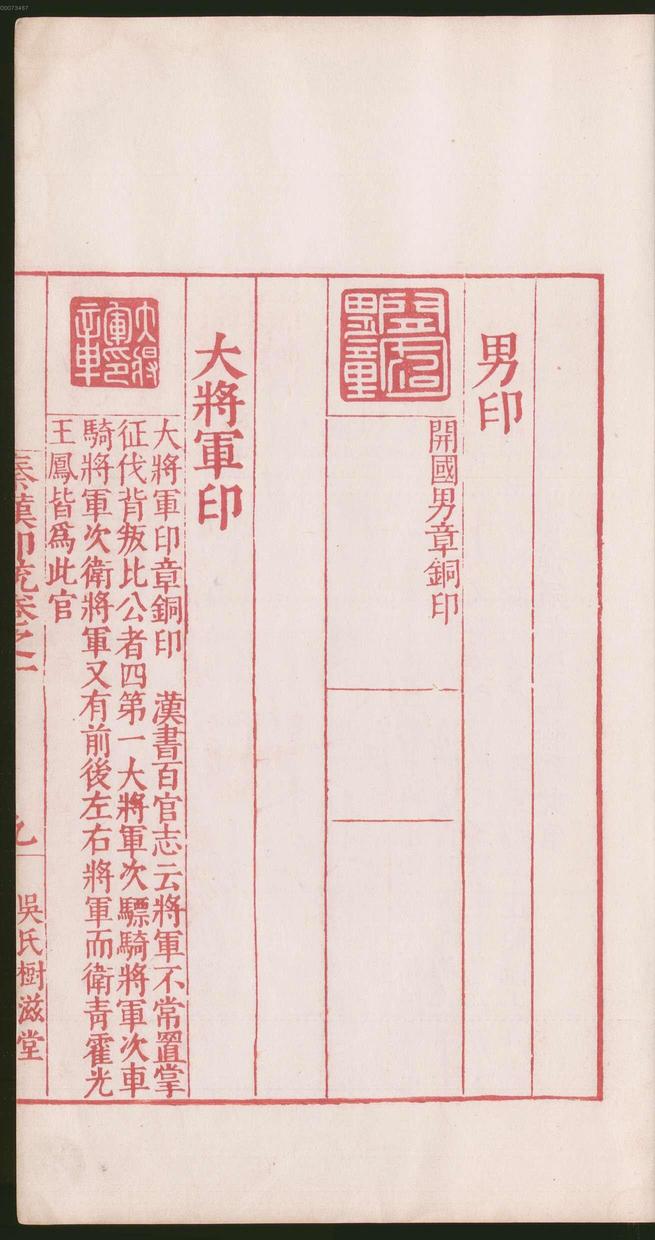 00073467
男印
開國男章銅印
大將軍印
大將軍印章
大將軍印章銅印　漢書百官志云將軍不常置掌
征伐背叛比公者四第一大將軍次驃騎將軍次車
騎將軍次衛將軍又有前後左右將軍而衛青霍光
王鳳皆爲此官
秦漢印統卷之一
九
吳氏樹滋堂